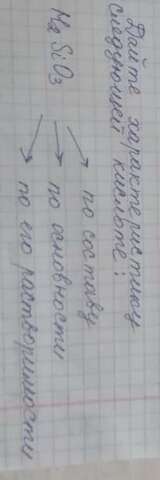 Дайте характеристику
следующей кислоте:
H₂SiO₃
по составу
по основности
по его растворимости